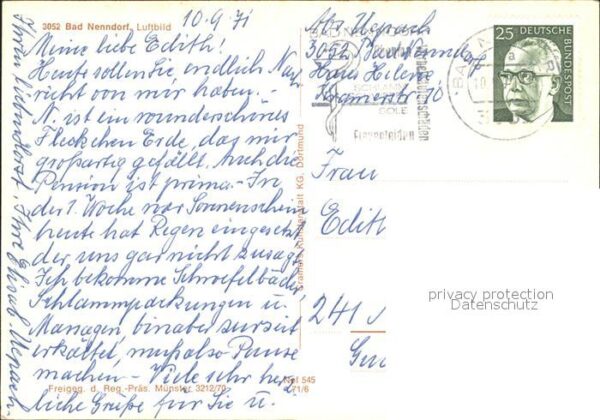 3052 Bad Nenndorf, Luftbild
10.9.71
Meine liebe Edith!
Heute sollen Sie, endlich Nach
richt von mir haben. -
N. ist ein wunderschönes
Fleckchen Erde, das mir
großartig gefällt. Auch die
Pension ist prima. - In
der 1. Woche war Sonnenschein
heute hat Regen eingesetzt
der uns gar nicht zusagt
Ich bekomme Schwefelbäder,
Schlammpackungen u.
Massagen, bin aber zur Zeit
erkältet, muß also Pause
machen - Viele sehr herz
liche Grüße für Sie u.
Ihre
Freigeg. d. Reg.-Präs. Münster 3212/70
Nef 545
71/6
Cramers Kunstanstalt KG, Dortmund
Abs.
3052 Bad Nenndorf
Haus Helene
10
25
DEUTSCHE
BUNDESPOST
SOLE
Frauenleiden
Frau
Edith
241
privacy protection
Datenschutz